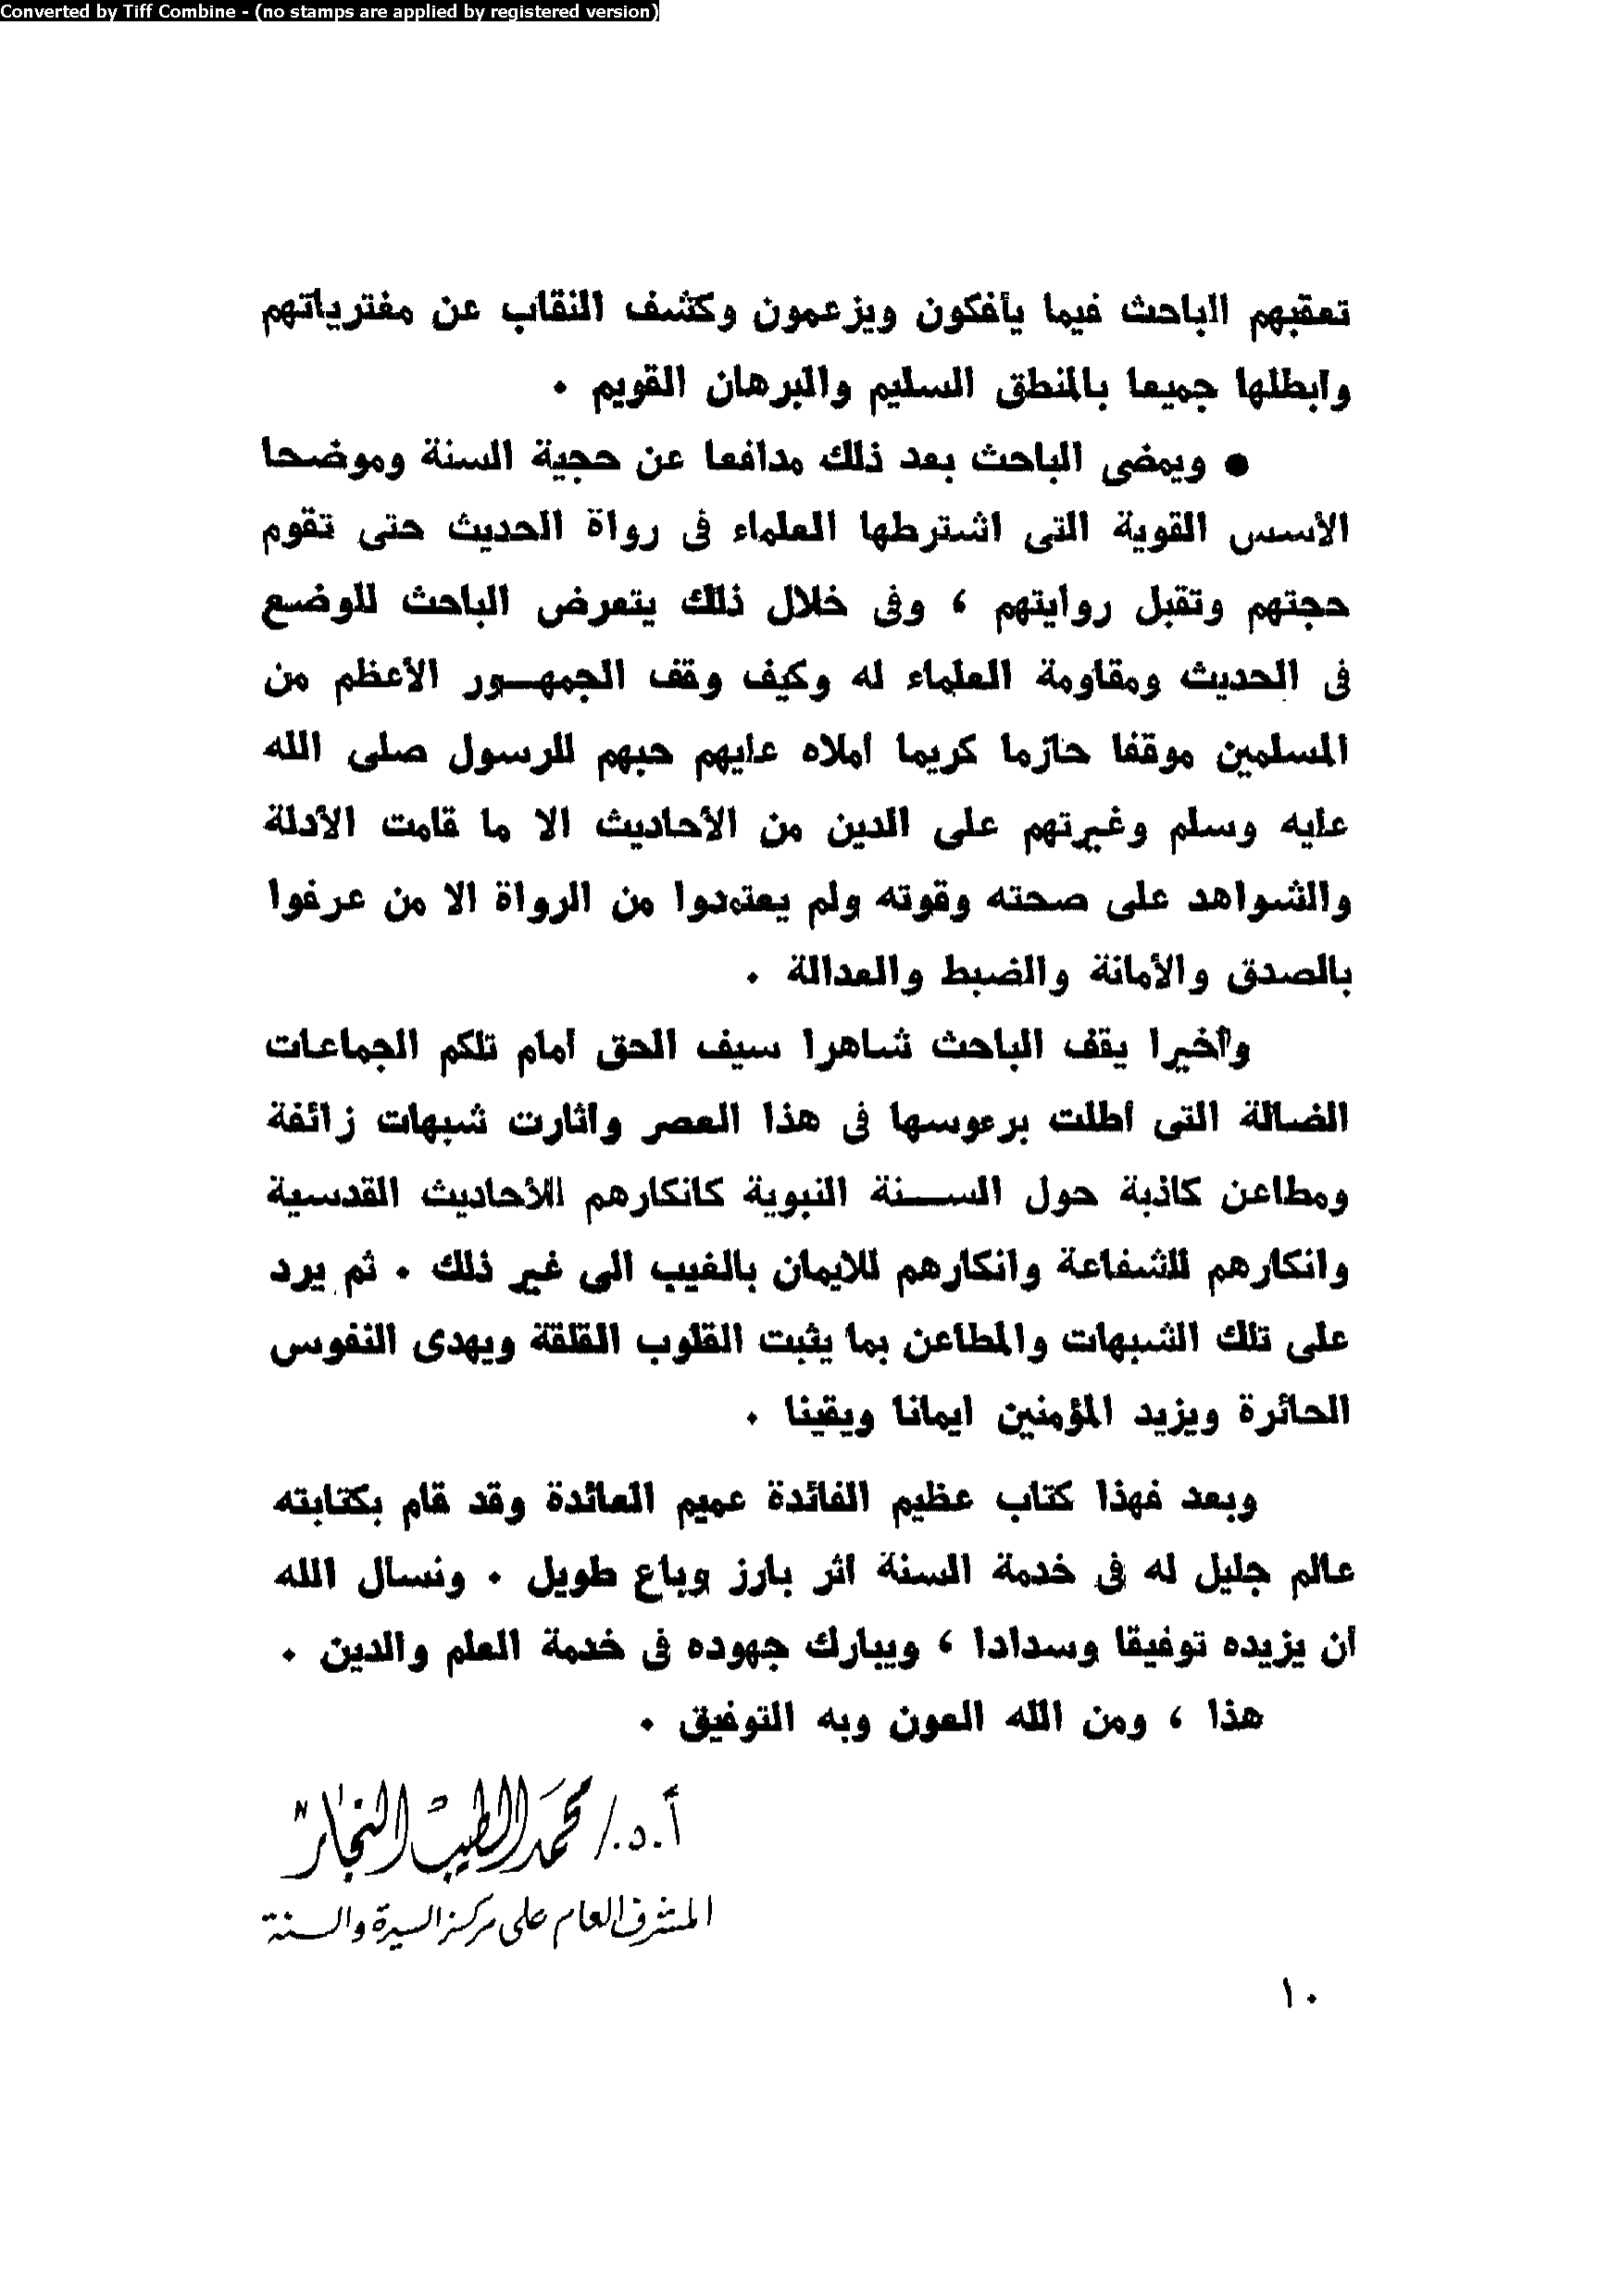 Converted by Tiff Combine - (no stamps are applied by registered version)
تعقبهم الباحث فيما يأفكون ويزعمون وكشف النقاب عن مفترياتهم
وأبطلها جميعا بالمنطق السليم والبرهان القويم .
● ويمضى الباحث بعد ذلك مدافعا عن حجية السنة وموضحا
الأسس القوية التى اشترطها العلماء فى رواة الحديث حتى تقوم
حجتهم وتقبل روايتهم ، وفى خلال ذلك يتعرض الباحث للوضع
فى الحديث ومقاومة العلماء له وكيف وقف الجمهـور الأعظم من
المسلمين موقفا حازما كريما أملاه عليهم حبهم للرسول صلى الله
عليه وسلم وغيرتهم على الدين من الأحاديث الا ما قامت الأدلة
والشواهد على صحته وقوته ولم يعتمدوا من الرواة الا من عرفوا
بالصدق والأمانة والضبط والعدالة .
وأخيرا يقف الباحث شاهرا سيف الحق أمام تلكم الجماعات
الضالة التى أطلت برءوسها فى هذا العصر وأثارت شبهات زائفة
ومطاعن كاذبة حول الســنة النبوية كانكارهم للأحاديث القدسية
وانكارهم للشفاعة وانكارهم للايمان بالغيب الى غير ذلك . ثم يرد
على تلك الشبهات والمطاعن بما يثبت القلوب القلقة ويهدى النفوس
الحائرة ويزيد المؤمنين ايمانا ويقينا .
وبعد فهذا كتاب عظيم الفائدة عميم العائدة وقد قام بكتابته
عالم جليل له فى خدمة السنة أثر بارز وباع طويل . ونسأل الله
أن يزيده توفيقا وسدادا ، ويبارك جهوده فى خدمة العلم والدين .
هذا ، ومن الله العون وبه التوفيق .
أ.د./ محمد الطيب النجار
المشرف العام على مركز السيرة والسنة
١٠